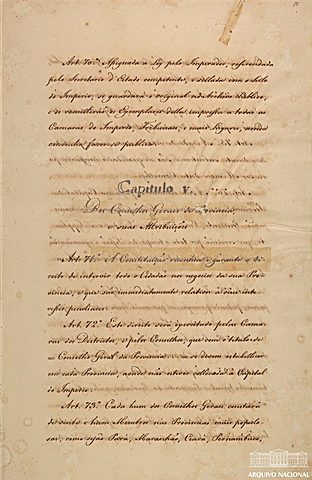 10
Art. 70. Assignada a Ley pelo Imperador, referendada
pelo Secretario d'Estado competente, e sellada com o Sello
do Imperio, se guardará o original no Archivo Publico,
e se remetterão os Exemplares della impressos a todas as
Camaras do Imperio, Tribunaes, e mais Lugares, aonde
convenha fazer-se publica.
Capitulo V.
Dos Conselhos Geraes de Provincia,
e suas Attribuições
Art. 71. A Constituição reconhece e garante o di-
reito de intervir todo o Cidadão nos negocios da sua Pro-
vincia, e que são immediatamente relativos a seus inte-
resses peculiares.
Art. 72. Este direito será exercitado pelas Cama-
ras dos Districtos, e pelos Conselhos, que com o titulo de
— Conselho Geral da Provincia — se devem estabelecer
em cada Provincia, aonde não estiver collocada a Capital
do Imperio.
Art. 73. Cada hum dos Conselhos Geraes constará
de vinte e hum Membros nas Provincias mais populo-
sas, como sejão Pará, Maranhão, Ceará, Pernambuco,
ARQUIVO NACIONAL